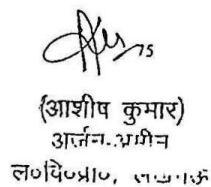 75
(आशीष कुमार)
अर्जन-अमीन
ल०वि०प्रा०, लखनऊ